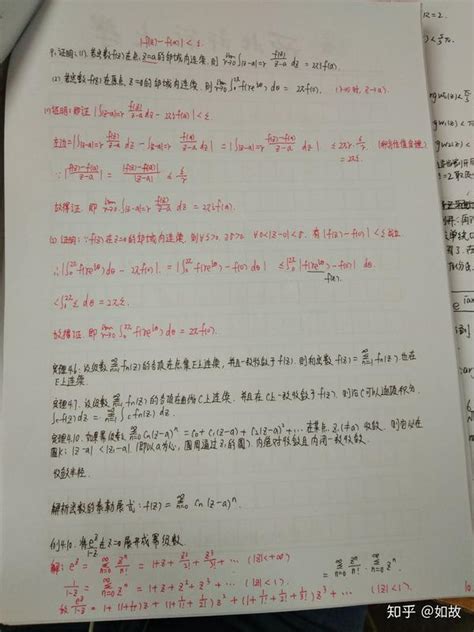 |f(z)-f(a)|<ε.
9.证明:(1) 若函数f(z)在点z=a的邻域内连续,则 lim r→0 ∫|z-a|=r f(z)/(z-a) dz = 2πi f(a).
(2) 若函数f(z)在原点z=0的邻域内连续,则 lim r→0 ∫₀^2π f(re^iθ)dθ = 2πf(0).
(1)证明:即证 |∫|z-a|=r f(z)/(z-a) dz - 2πi f(a)| < ε.
故得证. 即 lim r→0 ∫|z-a|=r f(z)/(z-a) dz = 2πi f(a).
(2) 证明:∵f(z)在z=0的邻域内连续,则∀ε>0, ∃δ>0, ∀0<|z-0|<δ, 有|f(z)-f(0)|<ε
∴|∫₀^2π f(re^iθ)dθ - 2πf(0)| = |∫₀^2π f(re^iθ)-f(0) dθ| ≤ ∫₀^2π |f(re^iθ)-f(0)| dθ
<∫₀^2π ε dθ = 2πε.
故得证. 即 lim r→0 ∫₀^2π f(re^iθ)dθ = 2πf(0).
定理4.6: 设级数 ∑ n=1 ∞ fn(z)的各项在点集E上连续, 并且一致收敛于f(z), 则和函数 f(z)=∑ n=1 ∞ fn(z) 也在
E上连续.
定理4.7: 设级数 ∑ n=1 ∞ fn(z)的各项在曲线C上连续, 并且在C上一致收敛于f(z), 则沿C可以逐项积分:
∫c f(z)dz = ∑ n=1 ∞ ∫c fn(z) dz.
定理4.10: 如果幂级数 ∑ n=0 ∞ Cn(z-a)^n = C0+C1(z-a)+C2(z-a)²+… 在某点 z1(≠a) 收敛, 则它必在
圆K: |z-a|<|z1-a| (即以a为心, 圆周通过z1的圆) 内绝对收敛且内闭一致收敛.
收敛半径.
解析函数的泰勒展式: f(z)=∑ n=0 ∞ Cn(z-a)^n.
例4.10. 将 e^z/(1-z) 在z=0展开成幂级数.
解: e^z = ∑ n=0 ∞ z^n/n! = 1+z+z²/2!+z³/3!+… (|z|<+∞)
1/(1-z) = ∑ n=0 ∞ z^n = 1+z+z²+z³+… (|z|<1).
= ∑ n=0 ∞ z^n/n! · ∑ n=0 ∞ z^n.
故 e^z/(1-z) = 1+(1+1/1!)z+(1+1/1!+1/2!)z²+(1+1/1!+1/2!+1/3!)z³+… (|z|<1).
知乎 @如故